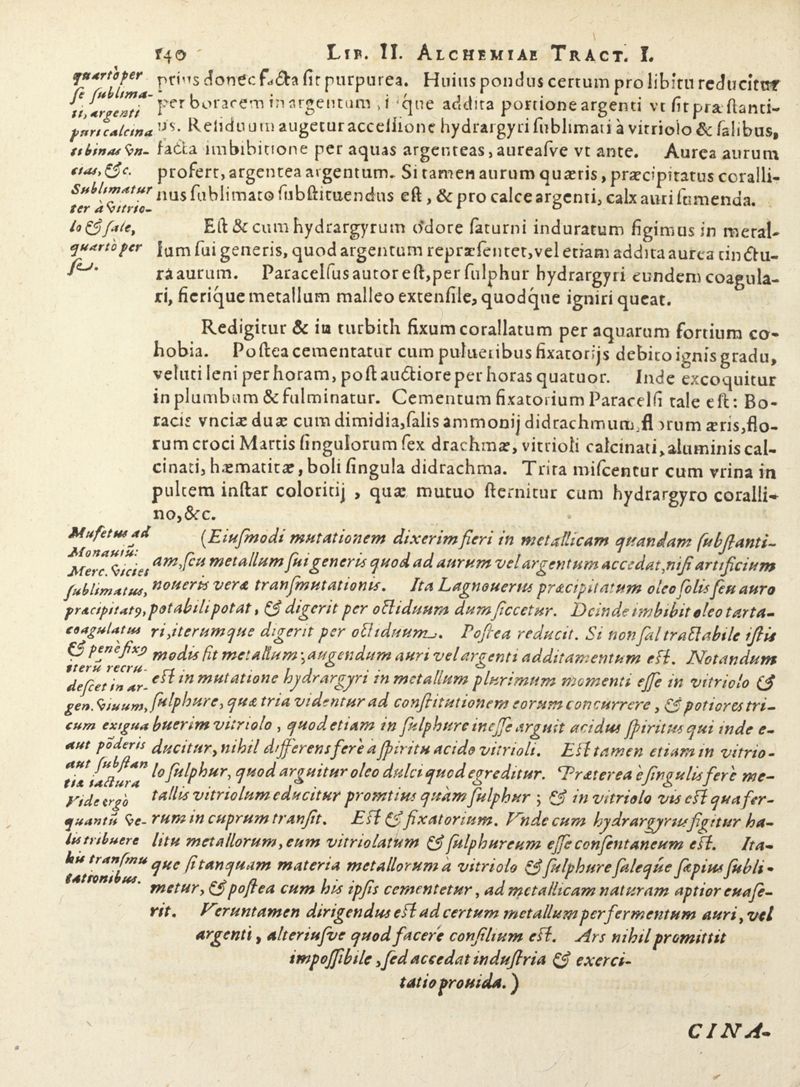 140 LIB. II. ALCHEMIAE TRACT. I.
quartò per
se sublima-
ti, argenti
puri calcina
ti binas vn-
cias, &c.
Sublimatur
ter à vitrio-
lo & sale,
quartò per
se.
prius donec facta sit purpurea. Huius pondus certum pro libitu reducitur
per boracem in argentum, i'que addita portione argenti vt sit præstanti-
us. Residuum augetur accessione hydrargyri sublimati à vitriolo & salibus,
facta imbibitione per aquas argenteas, aureasve vt ante. Aurea aurum
profert, argentea argentum. Si tamen aurum quæris, præcipitatus coralli-
nus sublimato substituendus est, & pro calce argenti, calx auri sumenda.
Est & cum hydrargyrum odore saturni induratum figimus in metal-
lum sui generis, quod argentum repræsentet, vel etiam addita aurea tinctu-
ra aurum. Paracelsus autor est, per sulphur hydrargyri eundem coagula-
ri, fierique metallum malleo extensile, quodque igniri queat.
Redigitur & in turbith fixum corallatum per aquarum fortium co-
hobia. Postea cementatur cum pulueribus fixatorijs debito ignis gradu,
veluti leni per horam, post auctiore per horas quatuor. Inde excoquitur
in plumbum & fulminatur. Cementum fixatorium Paracelsi tale est: Bo-
racis vnciæ duæ cum dimidia, salis ammonij didrachmum, florum æris, flo-
rum croci Martis singulorum sex drachmæ, vitrioli calcinati, aluminis cal-
cinati, hæmatitæ, boli singula didrachma. Trita miscentur cum vrina in
pultem instar coloritij, quæ mutuo sternitur cum hydrargyro coralli-
no, &c.
Musetus ad
Monauiũ:
Merc. vicies
sublimatus,
præcipitat9,
coagulatus
& penè fix9
iterũ recru-
descet in ar-
gen. viuum,
cum exigua
aut põderis
aut substan
tiæ iactura
Vide ergò
quantũ ve-
lis tribuere
his transmu
tationibus.
(Eiusmodi mutationem dixerim fieri in metallicam quandam substanti-
am, seu metallum sui generis quod ad aurum vel argentum accedat, nisi artificium
noueris veræ transmutationis. Ita Lagnouerius præcipitatum oleo solis seu auro
potabili potat, & digerit per octiduum dum siccetur. Deinde imbibit oleo tarta-
ri, iterumque digerit per octiduum. Postea reducit. Si non sal tractabile istis
modis fit metallum; augendum auri vel argenti additamentum est. Notandum
est in mutatione hydrargyri in metallum plurimum momenti esse in vitriolo &
sulphure, quæ tria videntur ad constitutionem eorum concurrere, & potiores tri-
buerim vitriolo, quod etiam in sulphure inesse arguit acidus spiritus qui inde e-
ducitur, nihil differens ferè à spiritu acido vitrioli. Est tamen etiam in vitrio-
lo sulphur, quod arguitur oleo dulci quod egreditur. Præterea è singulis ferè me-
tallis vitriolum educitur promtius quàm sulphur; & in vitriolo vis est qua fer-
rum in cuprum transit. Est & fixatorium. Vnde cum hydrargyrus figitur ha-
litu metallorum, eum vitriolatum & sulphureum esse consentaneum est. Ita-
que si tanquam materia metallorum à vitriolo & sulphure saleque sæpius subli-
metur, & postea cum his ipsis cementetur, ad metallicam naturam aptior euase-
rit. Veruntamen dirigendus est ad certum metallum per fermentum auri, vel
argenti, alteriusve quod facere consilium est. Ars nihil promittit
impossibile, sed accedat industria & exerci-
tatio prouida.)
CINA-